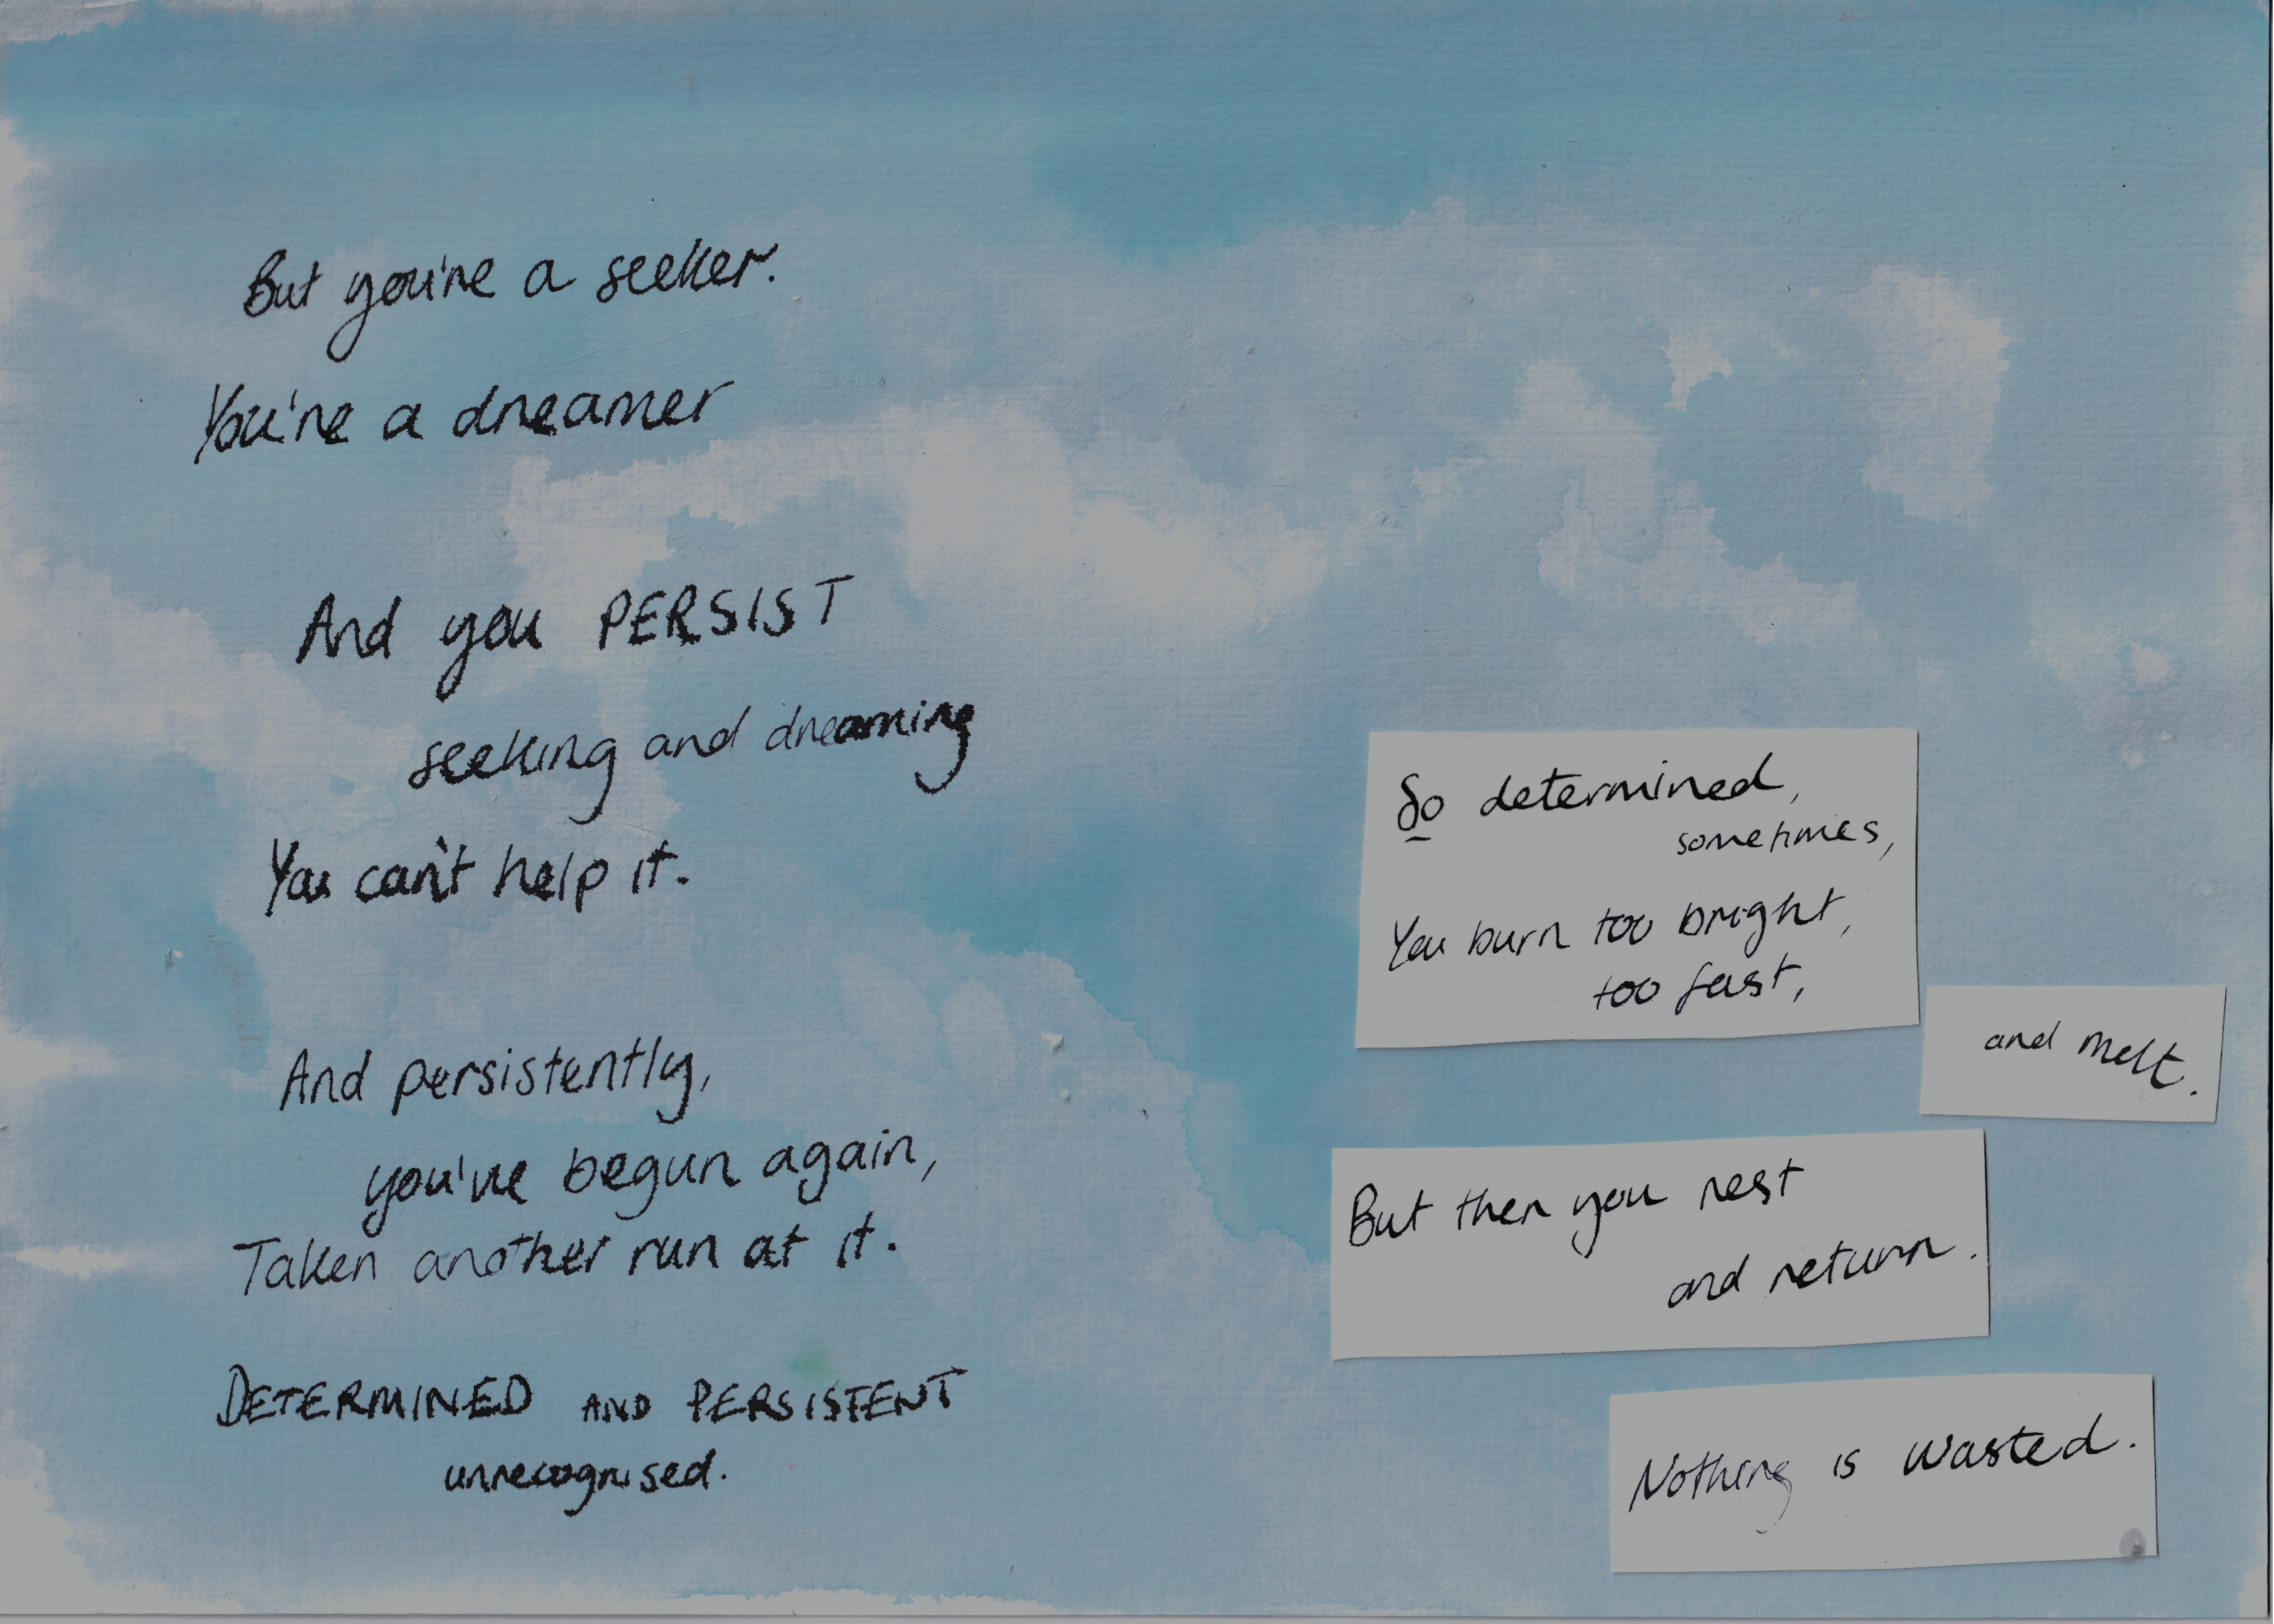 But you're a seeker.
You're a dreamer
And you PERSIST
seeking and dreaming
You can't help it.
And persistently,
you've begun again,
Taken another run at it.
DETERMINED AND PERSISTENT
unrecognised.
So determined,
sometimes,
You burn too bright,
too fast,
and melt.
But then you rest
and return.
Nothing is wasted.